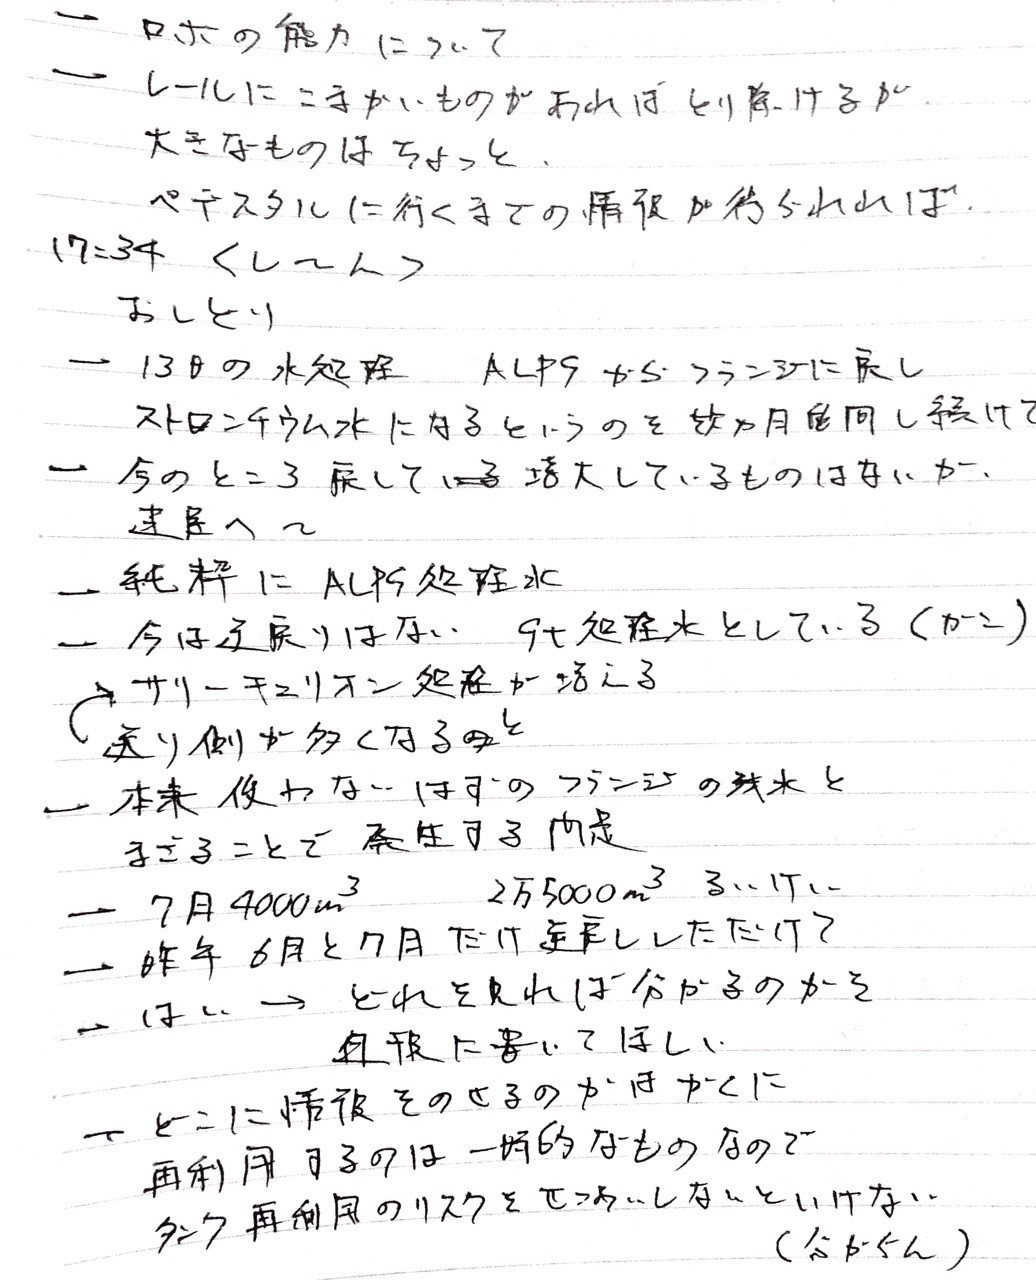 ー ロボの能力について
ー レールにこまかいものがあればとり除けるが、
大きなものはちょっと、
ペデスタルに行くまでの情報が得られれば、
17:34 くし〜ん>
おしどり
ー 13日の水処理 ALPSからフランジに戻し
ストロンチウム水になるというのを数ヵ月間し続けて
ー 今のところ戻している増大しているものはないが、
建屋へ〜
ー 純粋にALPS処理水
ー 今は逆戻りはない St処理水としている(かこ)
サリーキュリオン処理が増える
送り側が多くなると
ー 本来使わないはずのフランジの残水と
まざることで発生する問題
ー 7月4000m³ 2万5000m³ るいけい
ー 昨年6月と7月だけ逆戻ししただけで
ー はい → どれを見れば分かるのかを
日報に書いてほしい
ー どこに情報そのせるのかほかくに
再利用するのは一時的なものなので
タンク再利用のリスクをせつめいしないといけない
(分からん)